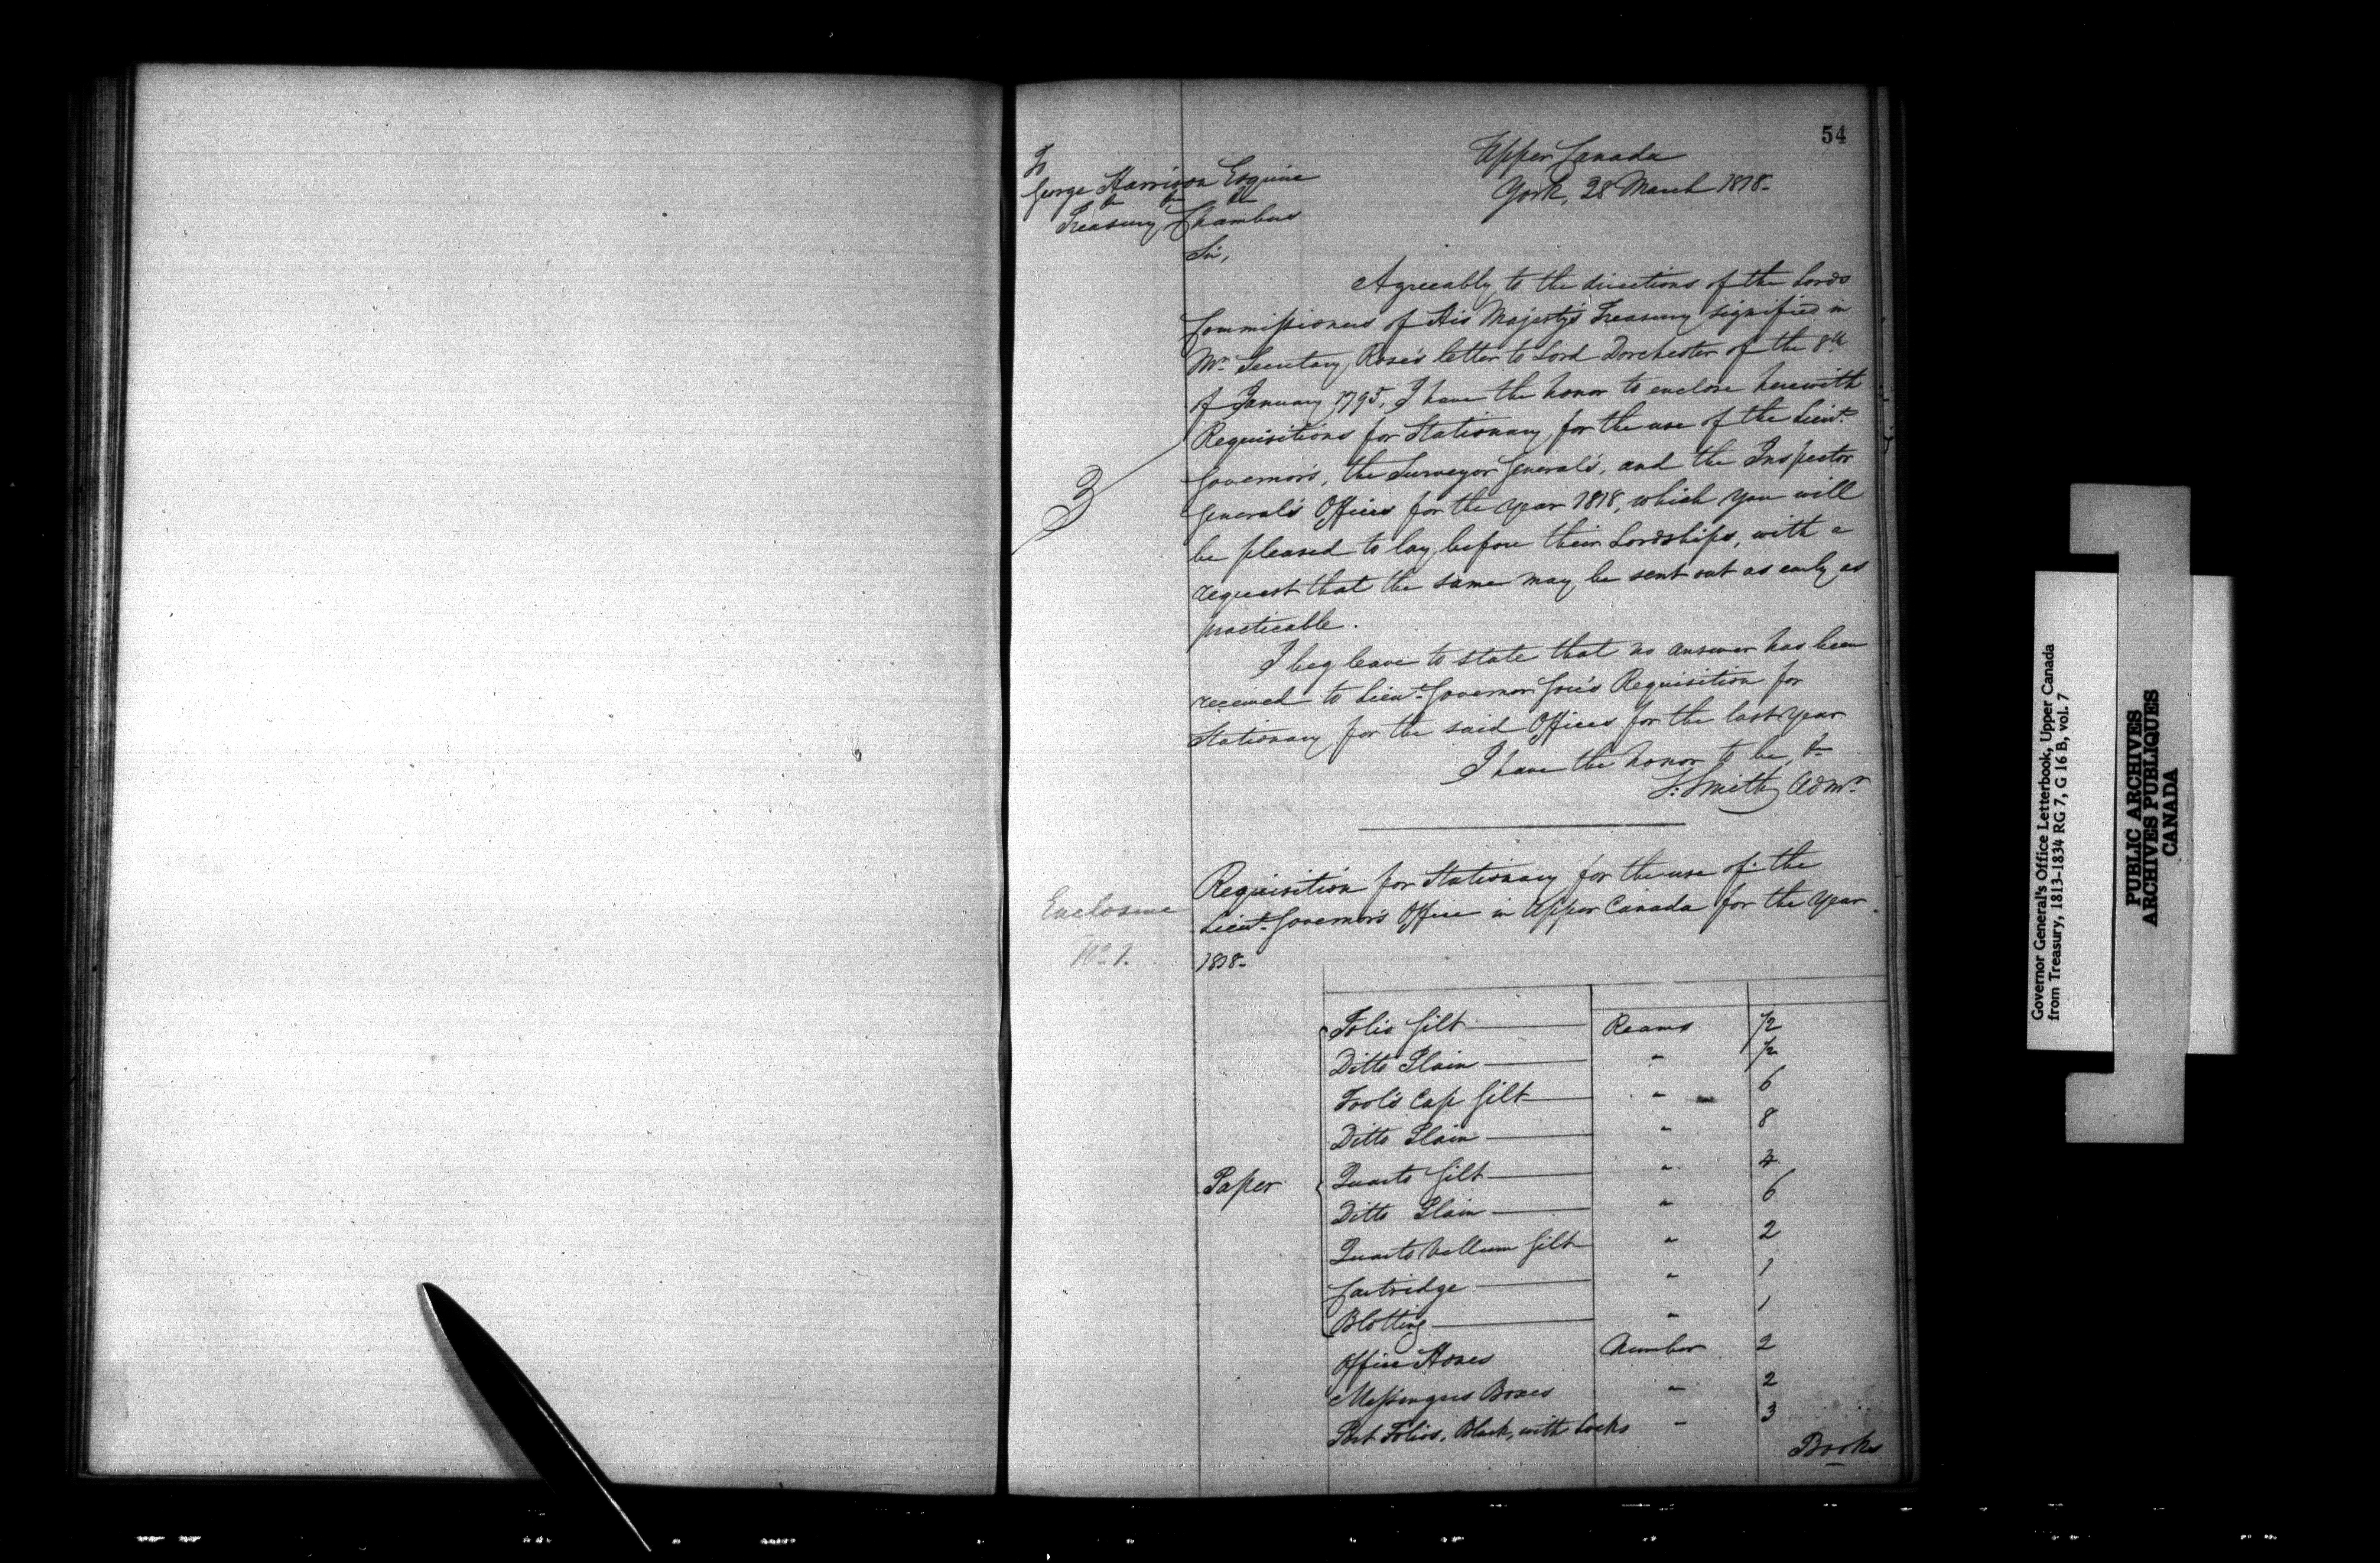 54
Upper Canada
York, 28 March 1818-
To
George Harrison Esquire
&c &c &c
Treasury Chambers
Sir,
Agreeably to the directions of the Lords
Commissioners of His Majesty's Treasury signified in
Mr. Secretary Rose's letter to Lord Dorchester of the 8th
of January 1795, I have the honor to enclose herewith
Requisitions for Stationary for the use of the Lieut.
Governor's, the Surveyor General's, and the Inspector
General's Offices for the year 1818, which you will
be pleased to lay before their Lordships, with a
request that the same may be sent out as early as
practicable.
3
I beg leave to state that no answer has been
received to Lieut. Governor Gore's Requisition for
Stationary for the said Offices for the last year
I have the honor to be, &c
S: Smith Admr.
Enclosure
No 1.
Requisition for Stationary for the use of the
Lieut. Governor's Office in Upper Canada for the year
1818-
Paper
Folio Gilt Reams 1/2
Ditto Plain " 1/2
Fool's Cap Gilt " 6
Ditto Plain " 8
Quarto Gilt " 4
Ditto Plain " 6
Quarto Vellum Gilt " 2
Cartridge " 1
Blotting " 1
Office Hones Number 2
Messengers Boxes " 2
Port Folios, Black, with Locks " 3
Books
Governor General's Office Letterbook, Upper Canada
from Treasury, 1813-1834 RG 7, G 16 B, vol. 7
PUBLIC ARCHIVES
ARCHIVES PUBLIQUES
CANADA